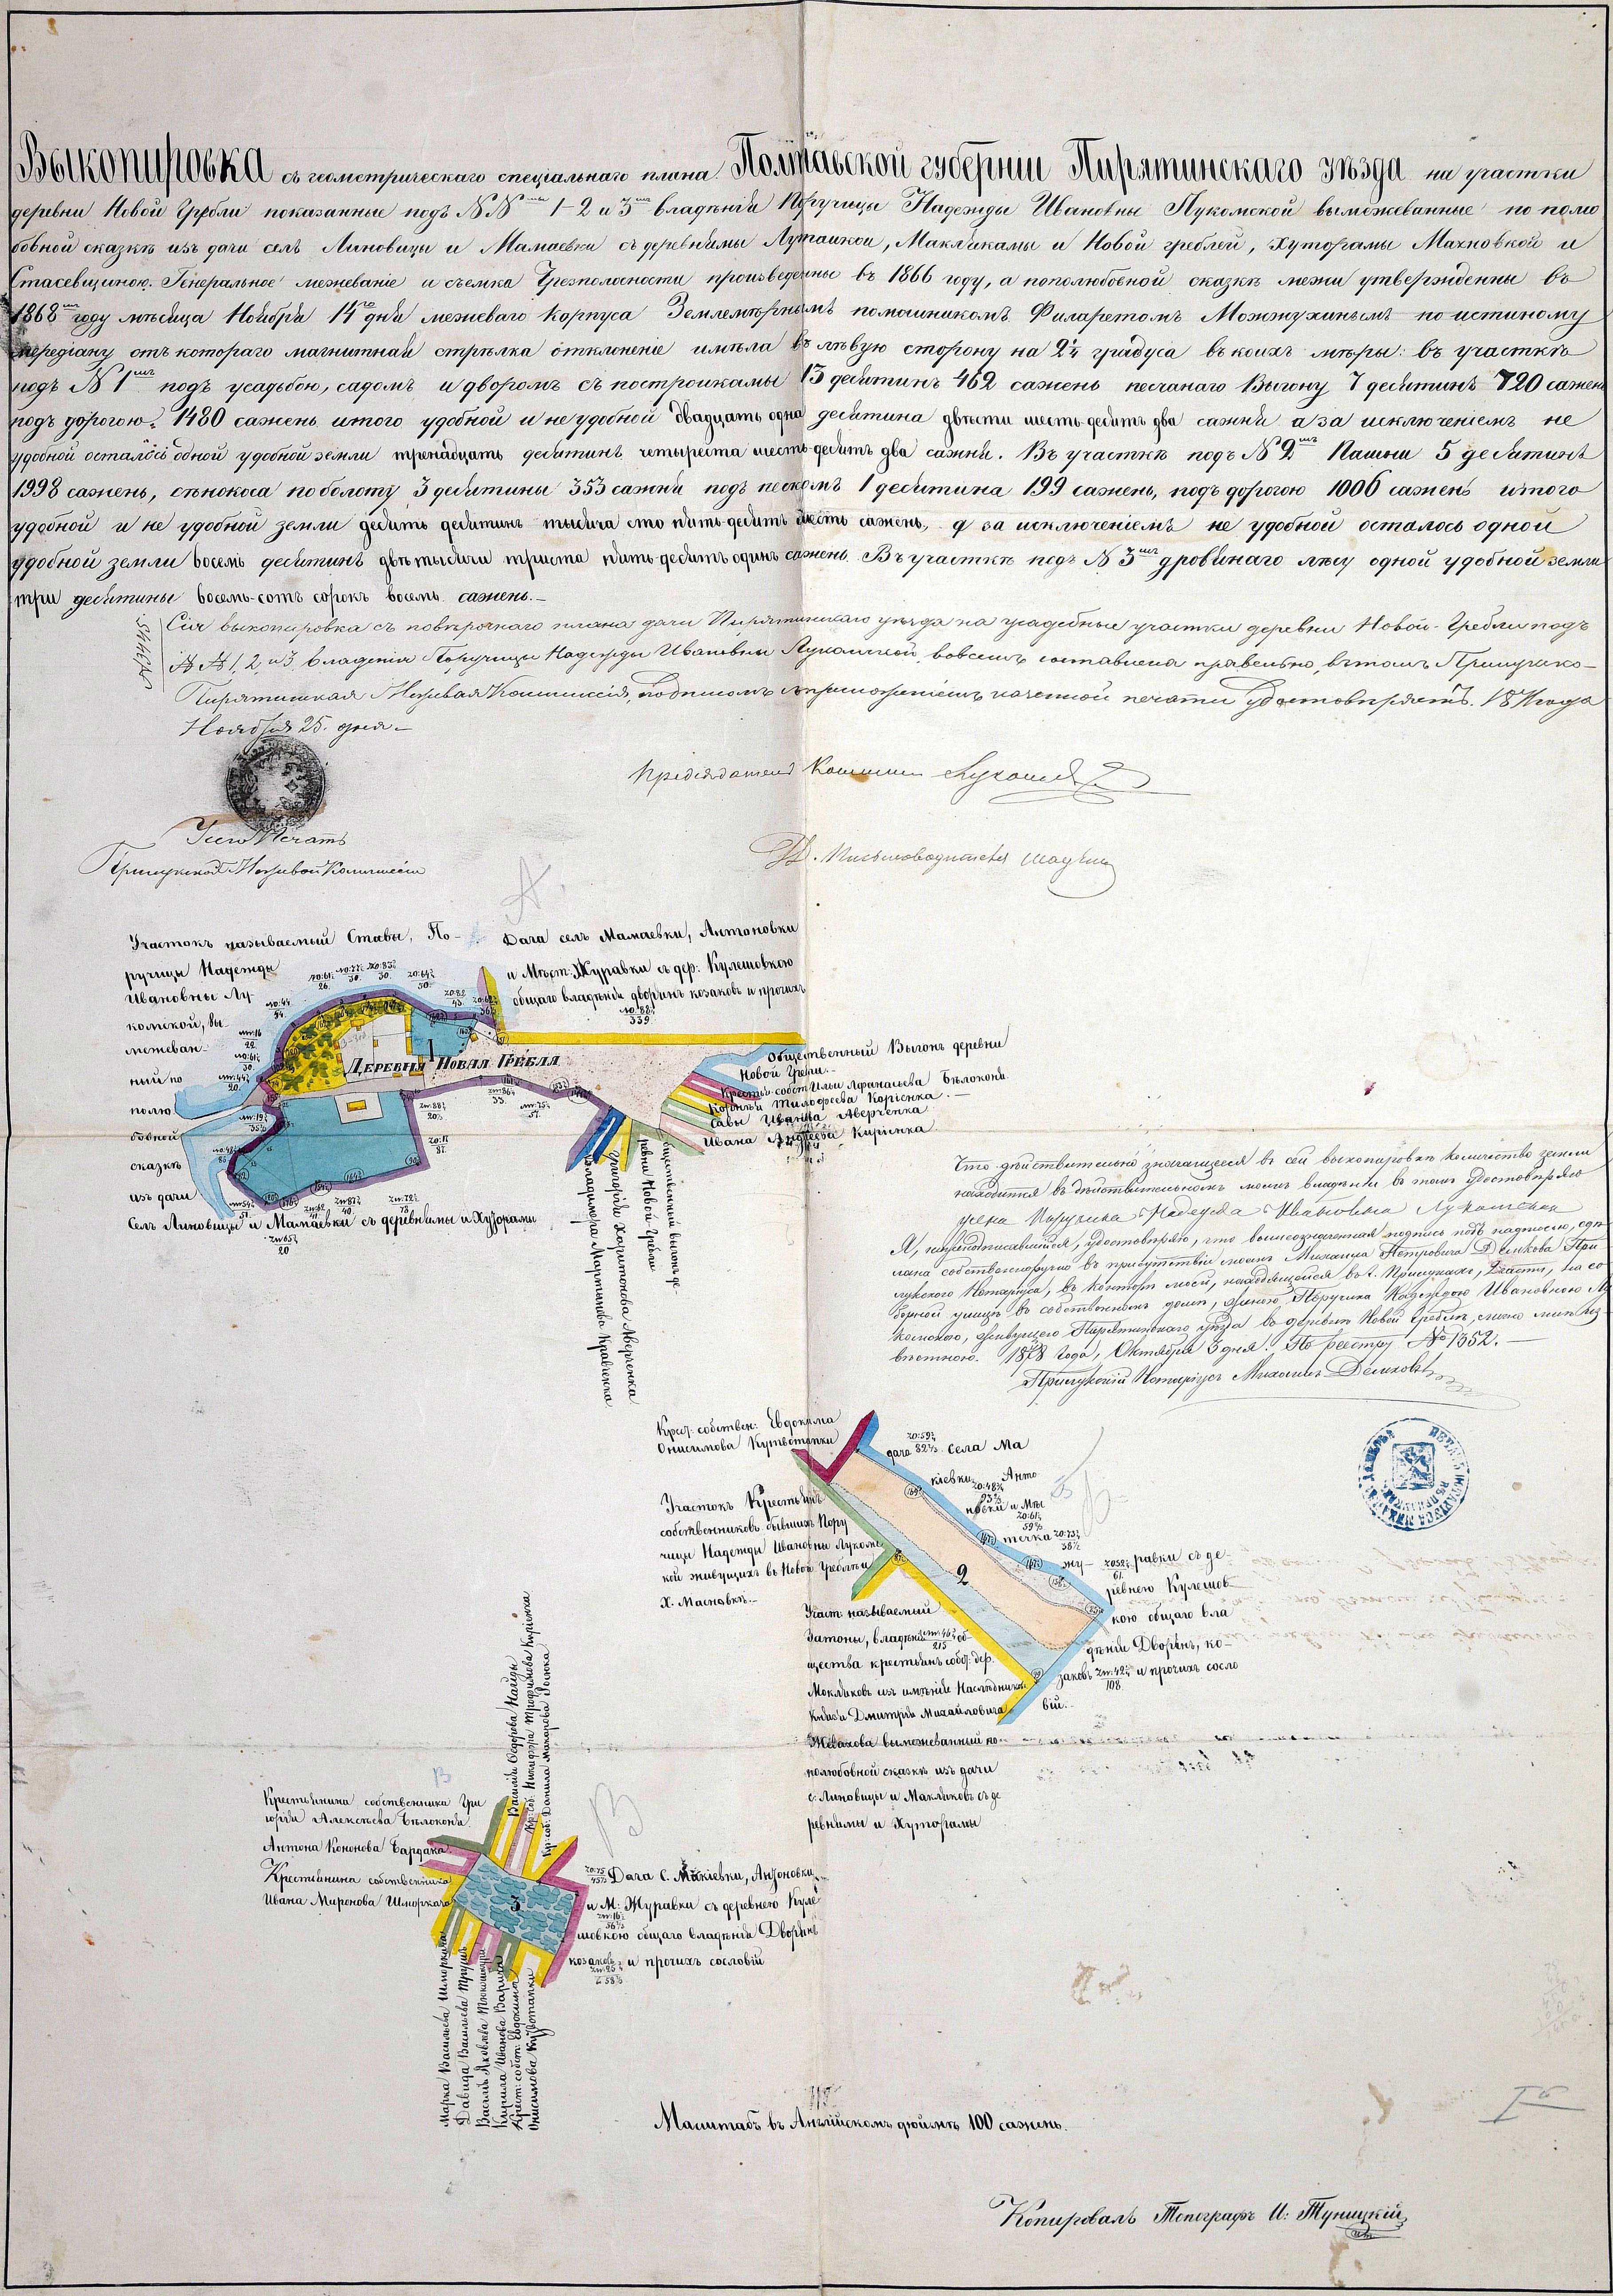 Выкопировка съ геометрическаго спеціальнаго плана Полтавской губерніи Пирятинскаго уѣзда на участки
деревни Новой Гребли показанные подъ №№ 1-2 и 3 владѣнія Поручицы Надежды Ивановны Лукомской вымежеванные по полю
бовной сказкѣ изъ дачи селъ Линовицы и Мамаевки съ деревнямы Лутайкой, Маклакамы и Новой греблей, хуторамы Махновкой и
Стасевщиною. Генеральное межеваніе и съемка Чрезполосности произведенны въ 1866 году, а пополюбовной сказкѣ межи утвержденны въ
1868 году мѣсяца Ноября 14 дня межеваго корпуса Землемѣрнымъ помошникомъ Филаретомъ Можжухинымъ по истиному
мередіану отъ котораго магнитная стрѣлка отклоненіе имѣла въ лѣвую сторону на 2¼ градуса въ коихъ мѣры: въ участкѣ
подъ № 1 подъ усадьбою, садомъ и дворомъ съ постройкамы 13 десятинъ 462 сажень песчанаго Выгону 7 десятинъ 720 сажень
подъ дорогою 1480 сажень итого удобной и не удобной двадцать одна десятина двѣсти шесть-десятъ два сажня а за исключеніемъ не
удобной осталось одной удобной земли тренадцать десятинъ четыреста шесть-десятъ два сажня. Въ участкѣ подъ № 2 Пашни 5 десятинъ
1998 сажень, сѣнокоса по болоту 3 десятины 353 сажня подъ пескомъ 1 десятина 199 сажень, подъ дорогою 1006 сажень итого
удобной и не удобной земли десять десятинъ тысяча сто пять-десятъ шесть сажень, а за исключеніемъ не удобной осталось одной
удобной земли восемь десятинъ двѣ тысячи триста пять-десятъ одинъ сажень. Въ участкѣ подъ № 3 дровянаго лѣсу одной удобной земли
три десятины восемь-сотъ сорокъ восемь сажень.
Сія выкопировка съ повѣрочнаго плана дачи Пирятинскаго уѣзда на усадебные участки деревни Новой-Гребли подъ
№№ 1, 2 и 3 владѣнія Поручицы Надежды Ивановны Лукомской, вовсемъ составлена правельно, вътомъ Прилукско-
Пирятинская Межевая Коммиссія, подписомъ съ приложеніемъ казенной печати удостовѣряетъ. 18 года
Ноября 25 дня
Председатель Коммисіи
Письмоводителя
Прилукской Межевой Коммиссіи
Участокъ называемый Ставы, По-
ручицы Надежды
Ивановны Лу-
комской, вы-
межеван-
ный по
полю
бовной
сказкѣ
изъ дачи
Селъ Линовицы и Мамаевки съ деревнямы и Хуторами
Дача селъ Мамаевки, Антоновки
и Мѣст: Журавки съ дер: Кулешовкою
общаго владѣнія дворянъ козаковъ и прочихъ
Деревня Новая Гребля
1
Общественный Выгонъ деревни
Новой Гребли.
Крестьн: собст: Ильи Афанасьева Бѣлоконя
Корнѣя Тимофеева Корієнка
Савы Иванна Аверченка
Ивана Андреева Кирієнка
Владимира Мартинова Кравченка
Григорія Харитонова Аверченка
общественный выгонъ де-
ревни Новой Гребли
Что дѣйствительно значащееся въ сей выкопировкѣ количество земли
находится въ дѣйствительномъ моемъ владѣніи въ томъ удостовѣряю
жена Поручика Надежда Ивановна Лукомская
Я, нижеподписавшійся, удостовѣряю, что вышеозначенная подпись подъ надписью, сдѣ
лана собственноручно въ присутствіи моемъ Михаила Петровича Демкова При
лукского Нотаріуса, въ конторѣ моей, находящейся въ г. Прилукахъ, 1 части, на со
борной улицѣ въ собственномъ домѣ, женою Поручика Надеждою Ивановною Лу
комскою, живущею Пирятинскаго уѣзда въ деревнѣ Новой Греблѣ, лично мнѣ из
вѣстною. 1878 года, Октября 3 дня. По реестру № 1352.
Прилукскій Нотаріусъ Михаилъ Демковъ
Крест: собствен: Евдокима
Онисимова Кутвотапки
дача села Ма
кіевки Анто
новки и Мѣс
течка Жу-
равки съ де-
ревнею Кулешов
кою общаго вла
дѣнія Дворянъ, ко-
заковъ и прочихъ сосло
вій.
Участокъ Крестьянъ
собственниковъ бывшихъ Пору
чицы Надежды Ивановны Лукомс
кой живущихъ въ Новой Греблѣ и
Х. Масновкѣ.
2
Участ: называемый
Затоны, владѣнія об-
щества крестьянъ собст: дер:
Мокляковъ изъ имѣнія Наслѣдниковъ
Князя Дмитрія Михайловича
Жевахова вымежеванный по
полюбовной сказкѣ изъ дачи
с. Линовицы и Макляковъ съ де
ревнямы и Хуторамы
Василія Федорова Найды
Кр: соб: Никифора Трофимова Кирієнка
Кр: соб: Данила Макарова Роєнка
Крестьянина собственника Гри
горія Алексѣева Бѣлоконя.
Антона Кононова Бардака
Крестьянина собственника
Ивана Миронова Шморкаго
3
Дача С. Макіевки, Антоновки
и М: Журавки съ деревнею Куле
шовкою общаго владѣнія Дворянъ
козаковъ и прочихъ сословій
Марка Васильева Шморкаго
Давида Васильева Труша
Кирила Иванова Варича
Крест: собст: Евдокима
Онисимова Кутвотапки
Масштабъ въ Англійскомъ дюймѣ 100 сажень.
Копировалъ Топографъ И: Туницкій